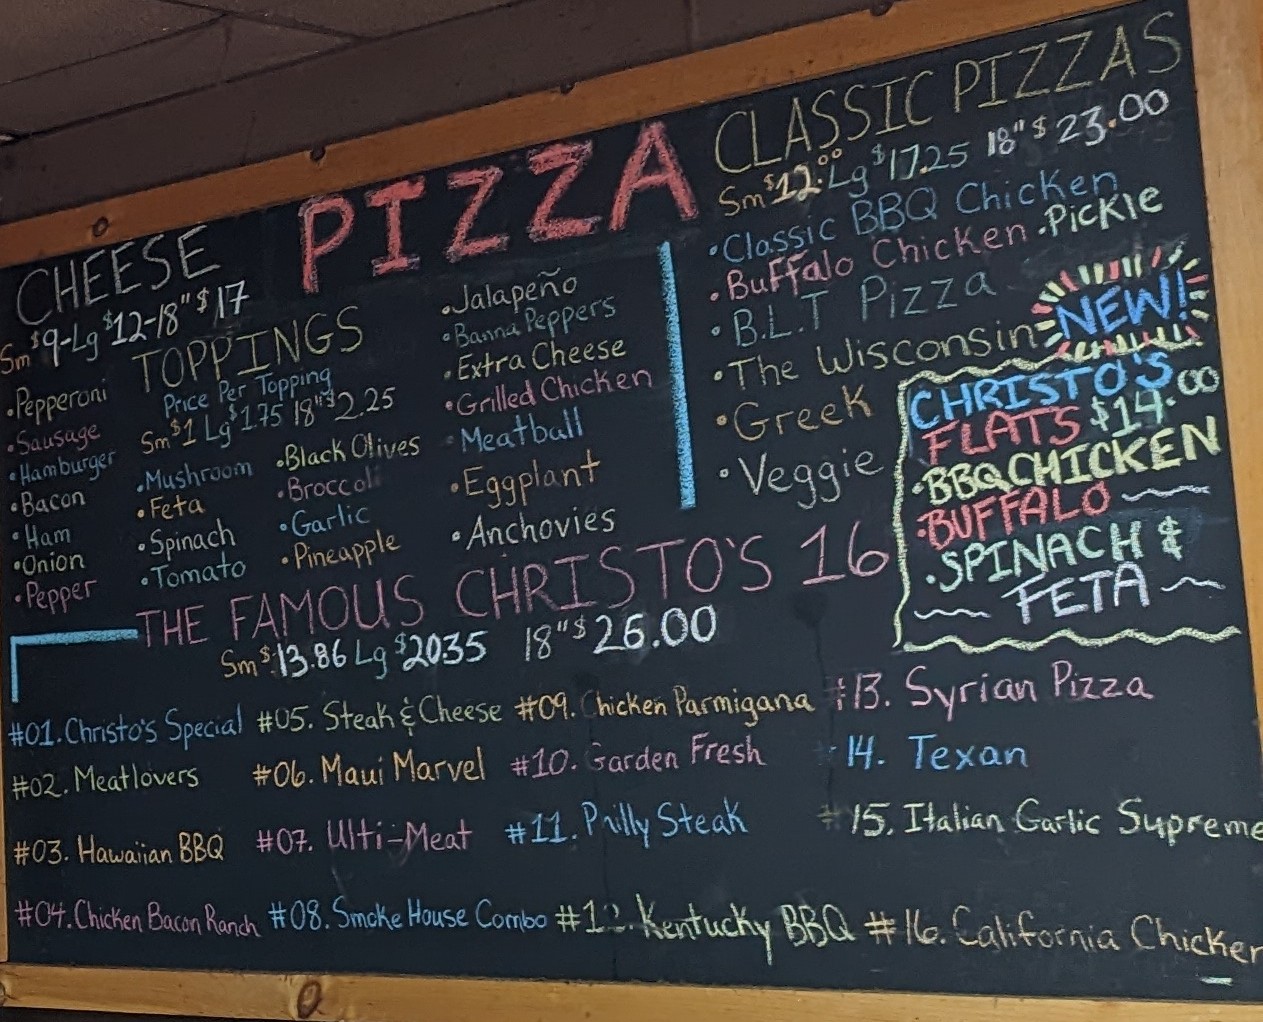 PIZZA
CHEESE
Sm $9-Lg $12-18" $17
TOPPINGS
Price Per Topping
Sm $1 Lg $1.75 18" $2.25
•Pepperoni
•Sausage
•Hamburger
•Bacon
•Ham
•Onion
•Pepper
•Mushroom
•Feta
•Spinach
•Tomato
•Black Olives
•Broccoli
•Garlic
•Pineapple
•Jalapeño
•Banna Peppers
•Extra Cheese
•Grilled Chicken
•Meatball
•Eggplant
•Anchovies
CLASSIC PIZZAS
Sm $12.00 Lg $17.25 18" $23.00
•Classic BBQ Chicken
•Buffalo Chicken •Pickle
•B.L.T Pizza
•The Wisconsin
•Greek
•Veggie
NEW!
CHRISTO'S
FLATS $14.00
•BBQ CHICKEN
•BUFFALO
•SPINACH &
FETA
THE FAMOUS CHRISTO'S 16
Sm $13.86 Lg $2035 18" $26.00
#01. Christo's Special
#02. Meatlovers
#03. Hawaiian BBQ
#04. Chicken Bacon Ranch
#05. Steak & Cheese
#06. Maui Marvel
#07. Ulti-Meat
#08. Smoke House Combo
#09. Chicken Parmigana
#10. Garden Fresh
#11. Philly Steak
#12. Kentucky BBQ
#13. Syrian Pizza
#14. Texan
#15. Italian Garlic Supreme
#16. California Chicken